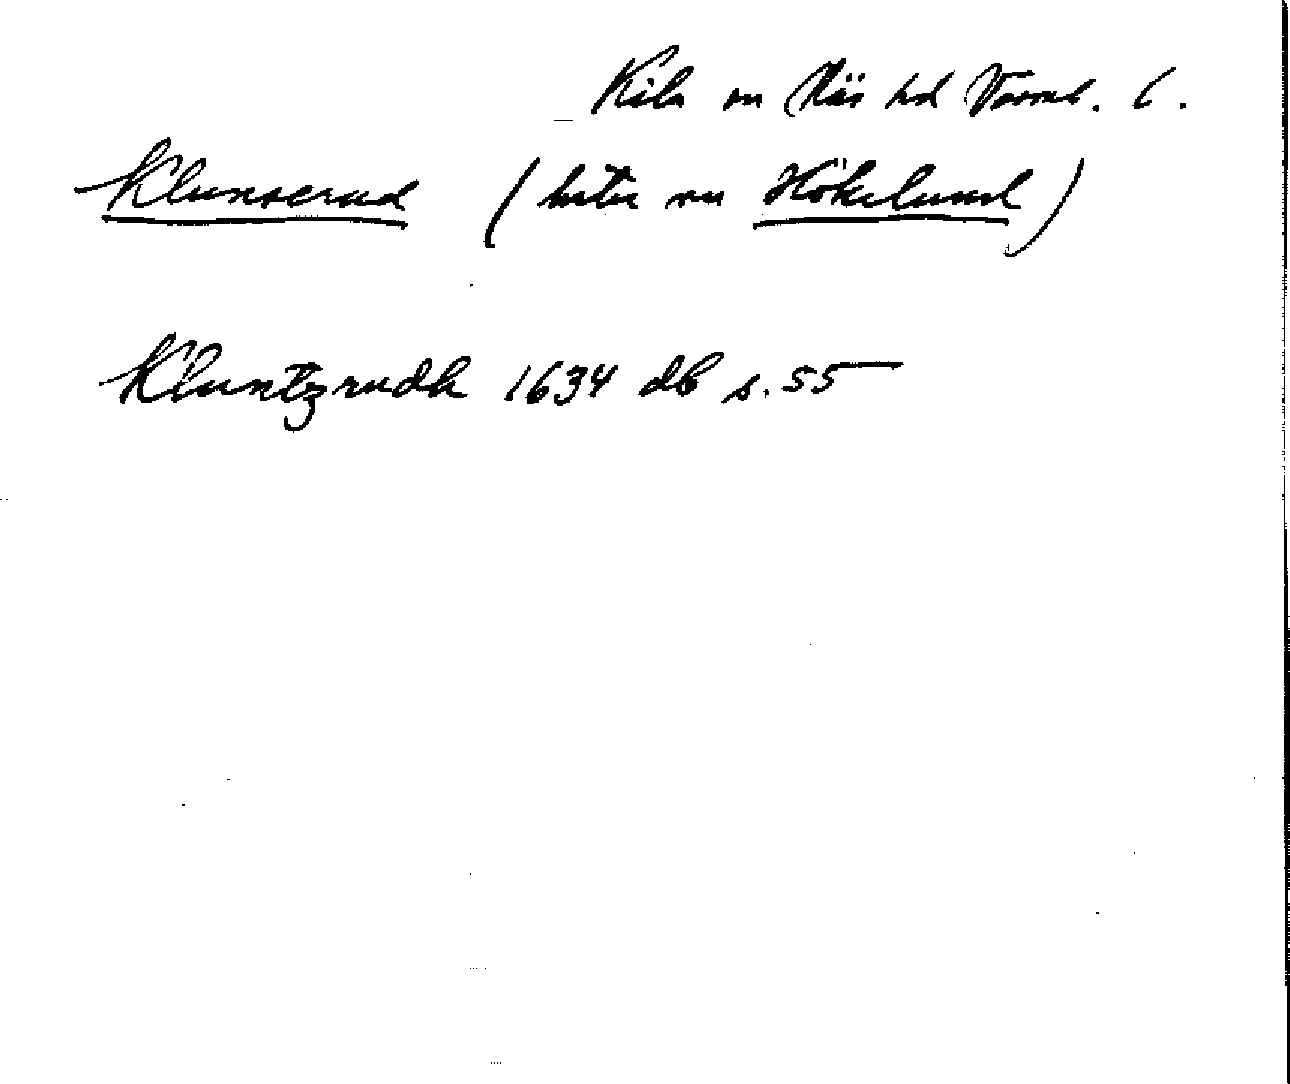 Kila sn Näs hd Värml. l.
Klunserud (heter nu Hökelund)
Kluntzrudh 1634 db s. 55